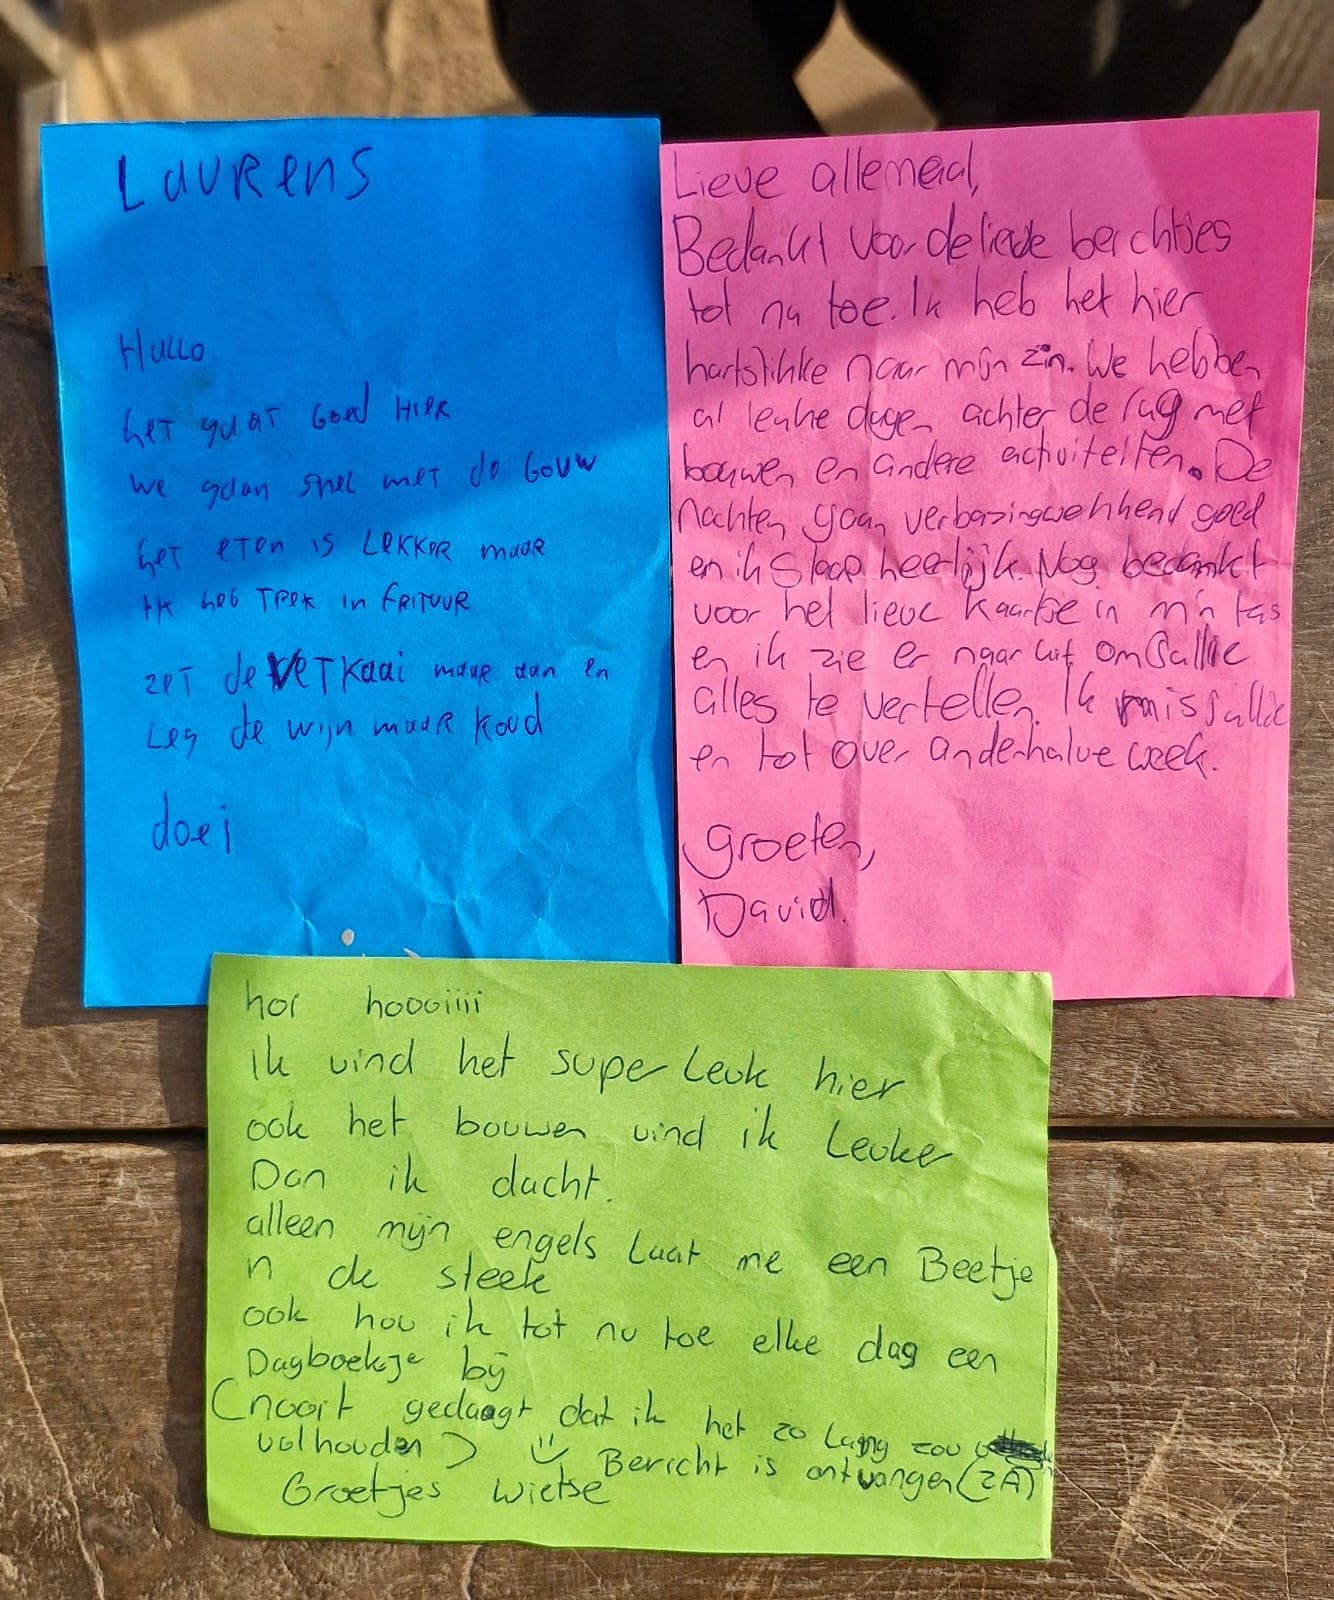 Laurens
Hallo
het gaat Goed Hier
we gaan snel met de bouw
het eten is Lekker maar
ik heb Trek in frituur
zet de vetkaai maar aan en
Leg de wijn maar koud
doei
Lieve allemaal,
Bedankt voor de lieve berichtjes
tot nu toe. Ik heb het hier
hartstikke naar mijn zin. We hebben
al leuke dagen achter de rug met
bouwen en andere activiteiten. De
nachten gaan verbazingwekkend goed
en ik slaap heerlijk. Nog bedankt
voor het lieve kaartje in m'n tas
en ik zie er naar uit om jullie
alles te vertellen. Ik mis jullie
en tot over anderhalve week.
groeten,
David.
hoi hoooiiii
ik vind het super Leuk hier
ook het bouwen vind ik Leuker
Dan ik dacht.
alleen mijn engels Laat me een Beetje
n de steek
ook hou ik tot nu toe elke dag een
Dagboekje bij
(nooit gedaagt dat ik het zo Lang zou
volhouden)
Bericht is ontvangen (ZA)
Groetjes Wietse